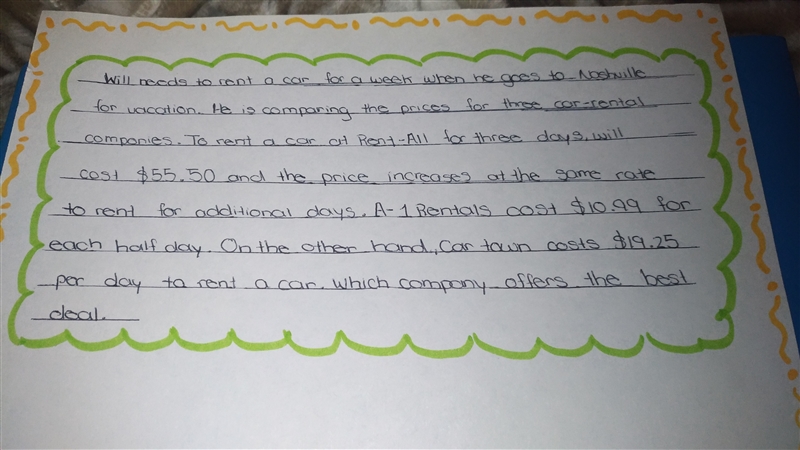 Will needs to rent a car for a week when he goes to Nashville
for vacation. He is comparing the prices for three car-rental
companies. To rent a car at Rent-All for three days, will
cost $55.50 and the price increases at the same rate
to rent for additional days. A-1 Rentals cost $10.99 for
each half day. On the other hand, Car town costs $19.25
per day to rent a car. Which company offers the best
deal.